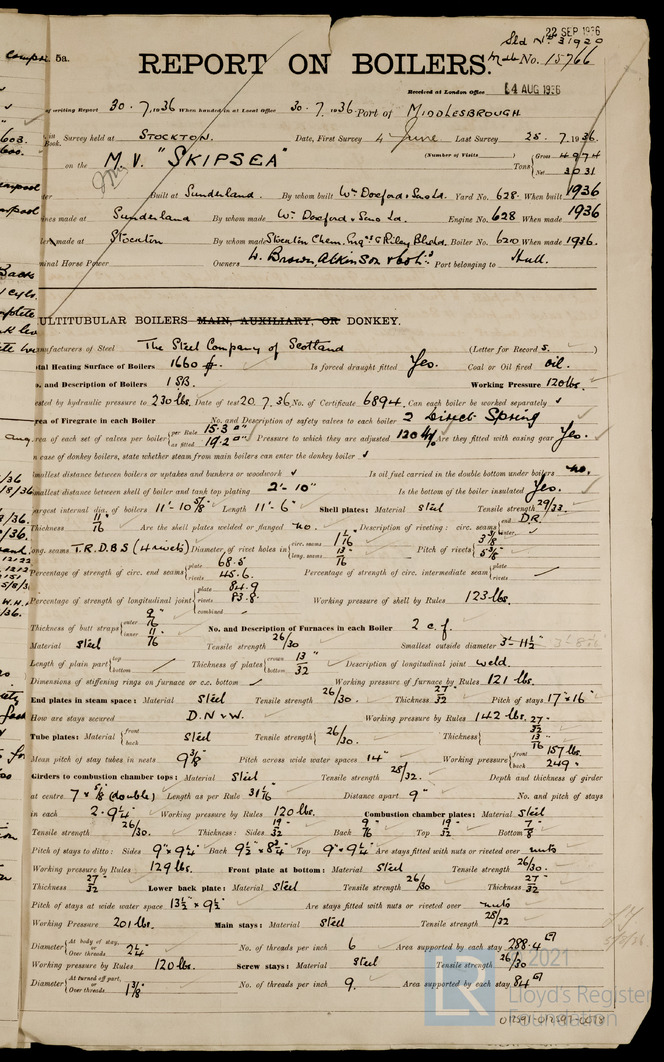 22 SEP 1936
Sld No. 31920
5a.
REPORT ON BOILERS.
Mdb No. 15766
Received at London Office 14 AUG 1936
writing Report 30. 7. 1936 When handed in at Local Office 30. 7. 1936 Port of MIDDLESBROUGH
Survey held at STOCKTON. Date, First Survey 4 June Last Survey 25. 7. 1936.
Book.
on the M.V. "SKIPSEA" (Number of Visits ) Tons { Gross 4974
Net 3031
Built at Sunderland. By whom built Wm Doxford & Sons Ld. Yard No. 628. When built 1936
made at Sunderland By whom made Wm Doxford & Sons Ld. Engine No. 628 When made 1936
made at Stockton By whom made Stockton Chem. Engrs & Riley Bldrs. Boiler No. 6210 When made 1936.
Horse Power Owners W. Brown, Atkinson & Co Ld. Port belonging to Hull.
ULTITUBULAR BOILERS MAIN, AUXILIARY, OR DONKEY.
nufacturers of Steel The Steel Company of Scotland (Letter for Record S. )
otal Heating Surface of Boilers 1660 Is forced draught fitted Yes. Coal or Oil fired oil.
o. and Description of Boilers 1 SB. Working Pressure 120 lbs.
ested by hydraulic pressure to 230 lbs. Date of test 20.7.36. No. of Certificate 6894. Can each boiler be worked separately ✓
rea of Firegrate in each Boiler No. and Description of safety valves to each boiler 2 Direct Spring
rea of each set of valves per boiler { per Rule 15.3
as fitted 19.2 Pressure to which they are adjusted 120 Are they fitted with easing gear Yes.
n case of donkey boilers, state whether steam from main boilers can enter the donkey boiler ✓
mallest distance between boilers or uptakes and bunkers or woodwork Is oil fuel carried in the double bottom under boilers no.
mallest distance between shell of boiler and tank top plating 2'-10" Is the bottom of the boiler insulated Yes.
argest internal dia. of boilers 11'-10 5/8" Length 11'-6" Shell plates: Material steel Tensile strength 29/33.
Thickness 11/16" Are the shell plates welded or flanged no. Description of riveting: circ. seams { end D.R.
inter.
ong. seams T.R.D.B.S (4 rivets) Diameter of rivet holes in { circ. seams 1 1/16
long. seams 13/16 Pitch of rivets { 3 3/8
5 3/8"
Percentage of strength of circ. end seams { plate 68.5
rivets 45.6. Percentage of strength of circ. intermediate seam { plate
rivets
Percentage of strength of longitudinal joint { plate 84.9
rivets 83.8
combined ✓ Working pressure of shell by Rules 123 lbs.
Thickness of butt straps { outer 9/16"
inner 11/16 No. and Description of Furnaces in each Boiler 2 c.f.
Material steel Tensile strength 26/30 Smallest outside diameter 3'-11 1/2"
Length of plain part { top
bottom Thickness of plates { crown
bottom 13/32 Description of longitudinal joint weld.
Dimensions of stiffening rings on furnace or c.c. bottom Working pressure of furnace by Rules 121 lbs.
End plates in steam space: Material steel Tensile strength 26/30. Thickness 27/32 Pitch of stays 17" x 16"
How are stays secured D.N & W. Working pressure by Rules 142 lbs.
Tube plates: Material { front
back steel Tensile strength { 26/30. Thickness { 27/32
13/16
Mean pitch of stay tubes in nests 9 3/8 Pitch across wide water spaces 14" Working pressure { front 157 lbs.
back 249.
Girders to combustion chamber tops: Material steel Tensile strength 28/32. Depth and thickness of girder
at centre 7 x 5/8 (double) Length as per Rule 31 1/16 Distance apart 9" No. and pitch of stays
in each 2. 9 1/4" Working pressure by Rules 120 lbs. Combustion chamber plates: Material steel
Tensile strength 26/30. Thickness: Sides 19/32 Back 9/16 Top 19/32 Bottom 7/8
Pitch of stays to ditto: Sides 9" x 9 1/4" Back 9 1/2" x 8 3/4" Top 9" x 9 1/4" Are stays fitted with nuts or riveted over nuts
Working pressure by Rules 129 lbs. Front plate at bottom: Material steel Tensile strength 26/30.
Thickness 27/32 Lower back plate: Material steel Tensile strength 26/30 Thickness 27/32
Pitch of stays at wide water space 13 1/2" x 9 1/2" Are stays fitted with nuts or riveted over nuts
Working Pressure 201 lbs. Main stays: Material steel Tensile strength 28/32
Diameter { At body of stay,
or
Over threads 2 1/4" No. of threads per inch 6 Area supported by each stay 288.4
Working pressure by Rules 120 lbs. Screw stays: Material steel Tensile strength 26/30
Diameter { At turned off part,
or
Over threads 1 3/8" No. of threads per inch 9. Area supported by each stay 84
© 2021
LR
Lloyd's Register
Foundation